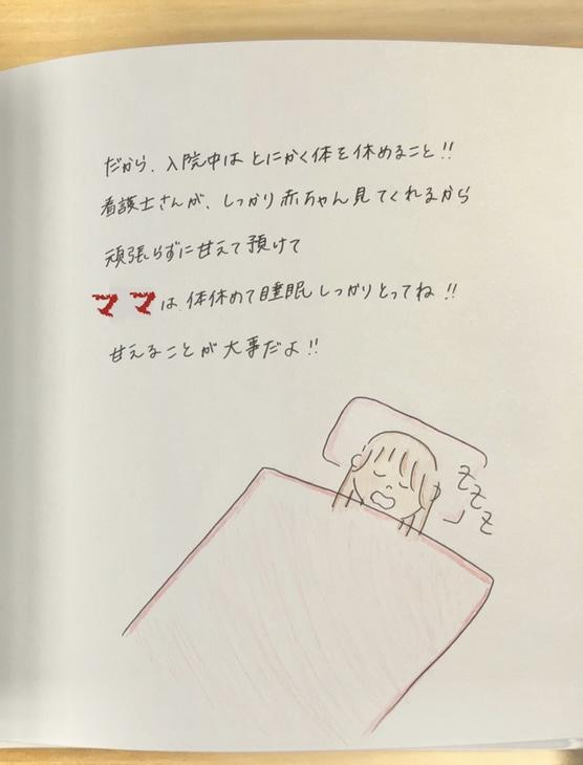 だから、入院中は とにかく体を休めること!!
看護士さんが、しっかり赤ちゃん見てくれるから
頑張らずに甘えて預けて
ママは、体休めて睡眠しっかりとってね!!
甘えることが大事だよ!!
zzz